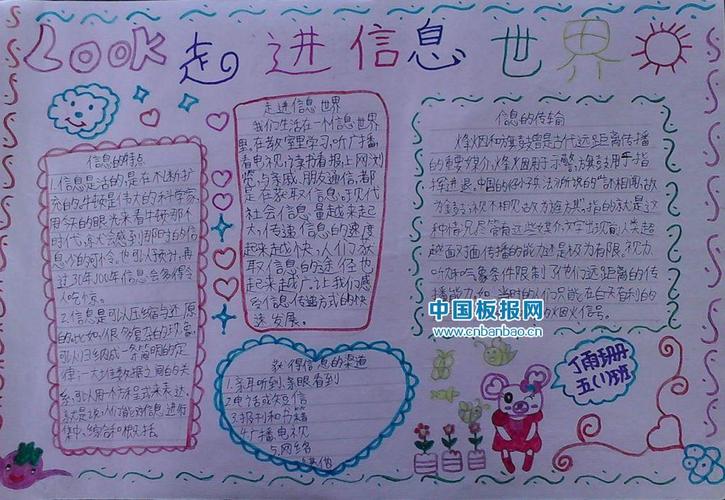 Look 走进信息世界
信息的特点
1.信息是活的,是在不断扩
充的.牛顿是伟大的科学家,
用今天的眼光来看牛顿那个
时代,你会感到那时的信
息少的可怜。也可以预计,再
过30年、100年信息会多得令
人吃惊。
2.信息是可以压缩与还原
的.比如,很多复杂的现象
可以归纳成一条简明的定
律;一大堆数据之间的关
系,可以用一个方程式来表达,
就是说,人们能对信息进行
集中、综合和概括。
走进信息世界
我们生活在一个信息世界
里,在教室里学习,听广播,
看电视,读书看报,上网浏
览,与亲戚、朋友通信,都
是在获取信息,现代
社会信息量越来越
大,传递信息的速度
越来越快,人们获
取信息的途径也
越来越广,让我们感
受信息传递方式的快
速发展。
信息的传输
烽烟和旗鼓曾是古代远距离传播
的重要媒介,烽烟用于示警,旗鼓用于指
挥进退。中国的《孙子兵法》所说的“言不相闻,故
为金鼓;视不相见,故为旌旗”,指的就是这
种情况.尽管有这些媒介,文字出现前,人类超
越面对面传播的能力还是极为有限。视力、
听力和气象条件限制了他们远距离的传
播能力
获得信息的渠道
1.亲耳听到、亲眼看到
2.电话或短信
3.报刊和书籍
4.广播电视
5.网络
其他
丁雨珊
五(1)班
中国板报网
www.cnbanbao.cn